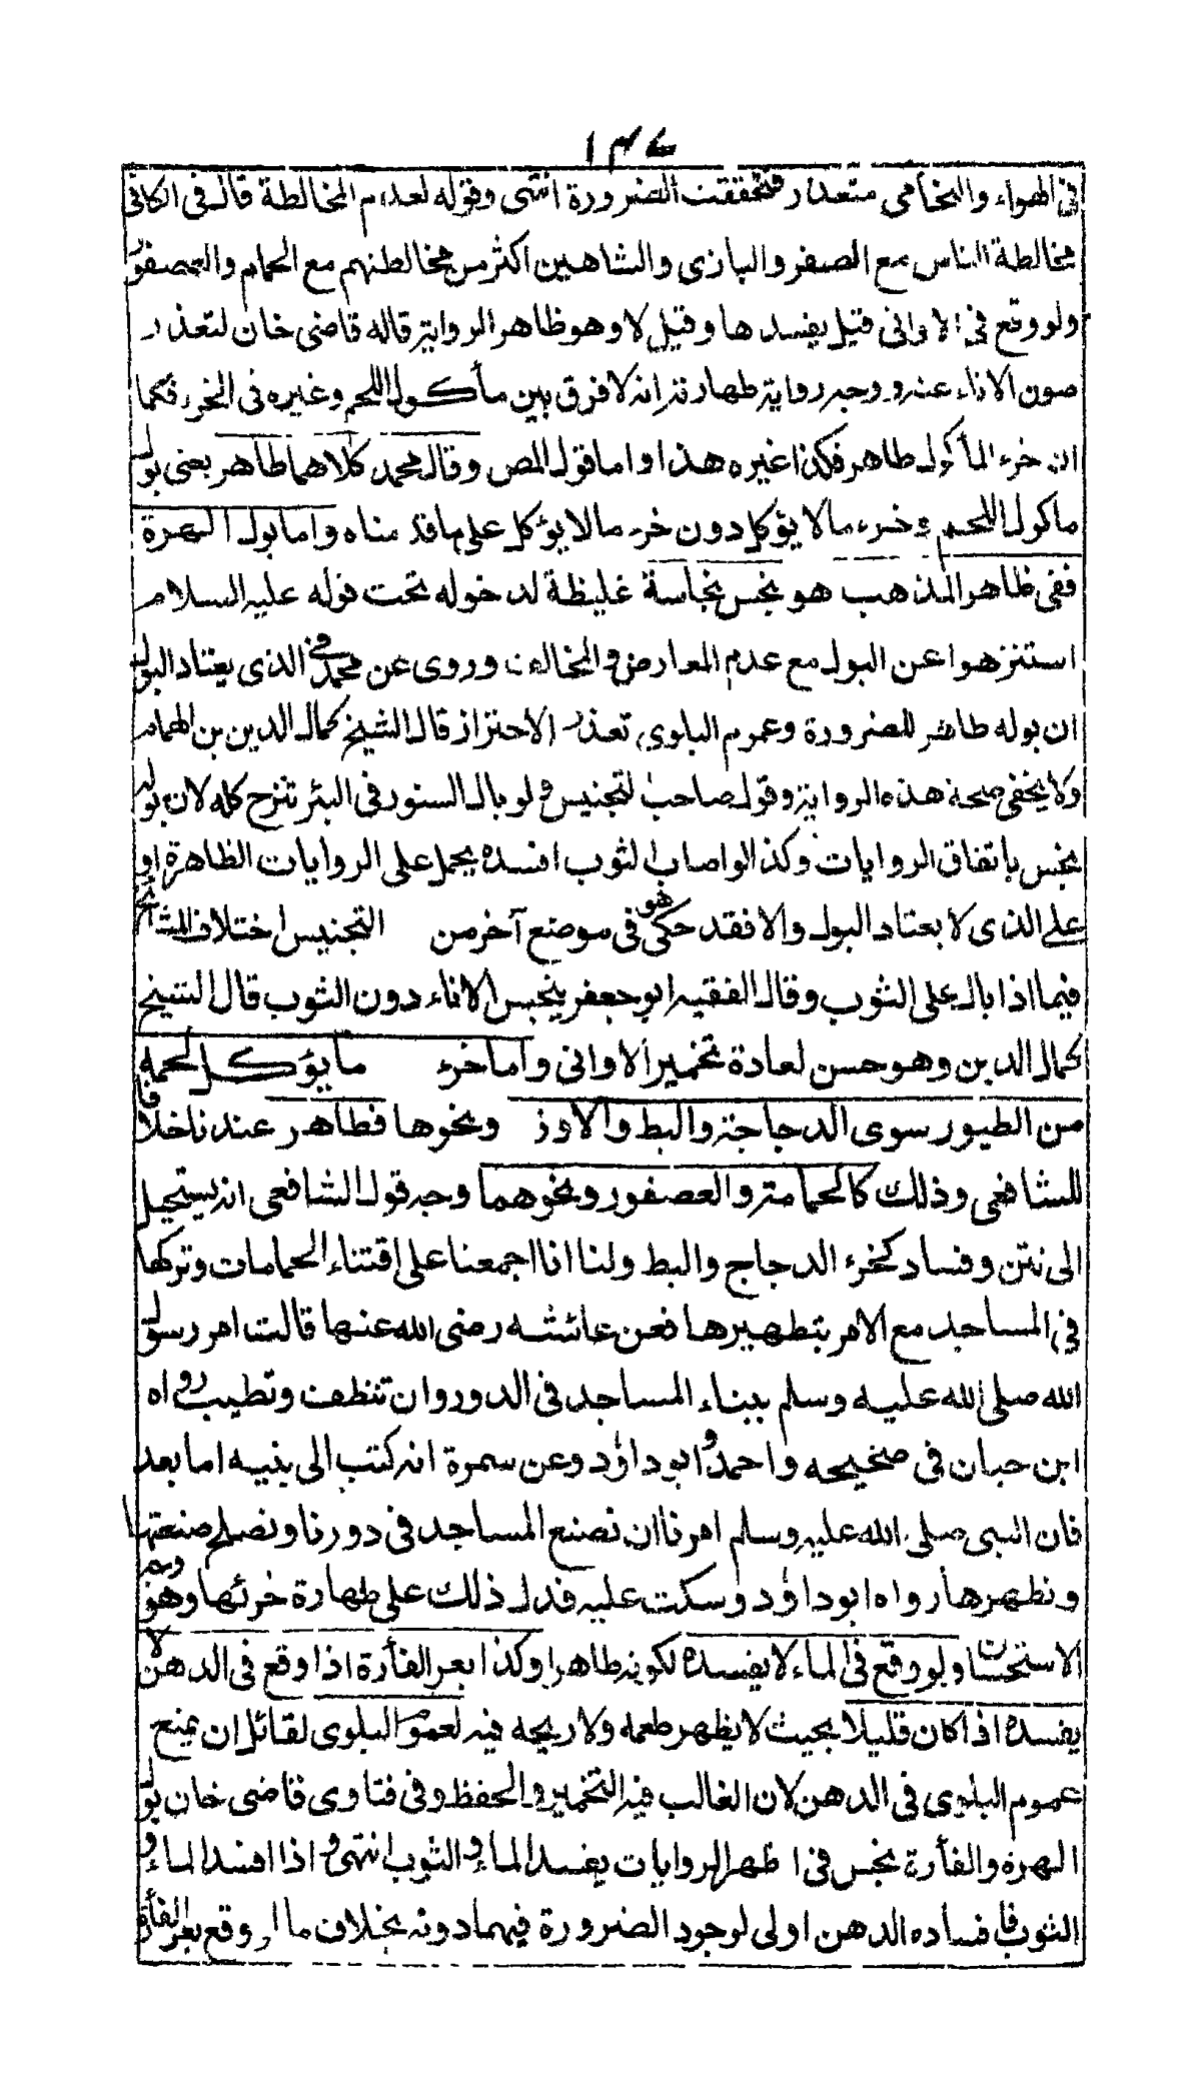 ١٤٧
فى الهواء والتحامى متعذر فتحققت الضرورة انتهى وقوله لعدم المخالطة قال فى الكافى
مخالطة الناس مع الصقر والبازى والشاهين اكثر من مخالطتهم مع الحمام والعصفور
ولو وقع فى الاوانى قيل يفسدها وقيل لا وهو ظاهر الرواية قاله قاضى خان لتعذر
صون الاناء عنه ووجه رواية طهارته انه لا فرق بين مأكول اللحم وغيره فى الخرء فكما
ان خرء المأكول طاهر فكذا غيره هذا واما قول المص وقال محمد كلاهما طاهر يعنى بول
ماكول اللحم وخرء مالا يؤكل دون خرء مالا يؤكل على ما قدمناه واما بول الهرة
ففى ظاهر المذهب هو نجس نجاسة غليظة لدخوله تحت قوله عليه السلام
استنزهوا عن البول مع عدم المعارض والمخالف وروى عن محمد فى الذى يعتاد البول
ان بوله طاهر للضرورة وعموم البلوى تعذر الاحتراز قال الشيخ كمال الدين بن الهمام
ولا يخفى صحة هذه الرواية وقول صاحب التجنيس ولو بال السنور فى البئر تنزح كله لان بوله
نجس باتفاق الروايات وكذا لو اصاب الثوب افسده يحمل على الروايات الظاهرة او
على الذى لا يعتاد البول والا فقد حكى هو فى موضع آخر من التجنيس اختلاف المشائخ
فيما اذا بال على الثوب وقال الفقيه ابو جعفر ينجس الاناء دون الثوب قال الشيخ
كمال الدين وهو حسن لعادة تخمير الاوانى واما خرء ما يؤكل لحمه
من الطيور سوى الدجاجة والبط والاوز ونحوها فطاهر عندنا خلافا
للشافعى وذلك كالحمامة والعصفور ونحوهما وجه قول الشافعى انه يستحيل
الى نتن وفساد كخرء الدجاج والبط ولنا انا اجمعنا على اقتناء الحمامات وتركها
فى المساجد مع الامر بتطهيرها فعن عائشه رضى الله عنها قالت امر رسول
الله صلى الله عليه وسلم ببناء المساجد فى الدور وان تنظف وتطيب رواه
ابن حبان فى صحيحه واحمد وابو داؤد وعن سمرة انه كتب الى بنيه اما بعد
فان النبى صلى الله عليه وسلم امرنا ان نصنع المساجد فى دورنا ونصلح صنعتها
ونطهرها رواه ابو داؤد وسكت عليه فدل ذلك على طهارة خرئها وهو وجه
الاستحسان ولو وقع فى الماء لا يفسده لكونه طاهرا وكذا بعر الفأرة اذا وقع فى الدهن لا
يفسده اذا كان قليلا بحيث لا يظهر طعمه ولا ريحه فيه لعموم البلوى لقائل ان يمنع
عموم البلوى فى الدهن لان الغالب فيه التخمير والحفظ وفى فتاوى قاضى خان بول
الهرة والفأرة نجس فى اظهر الروايات يفسد الماء والثوب انتهى واذا افسد الماء و
الثوب فافساده الدهن اولى لوجود الضرورة فيهما دونه بخلاف ما لو وقع بعر الفأرة